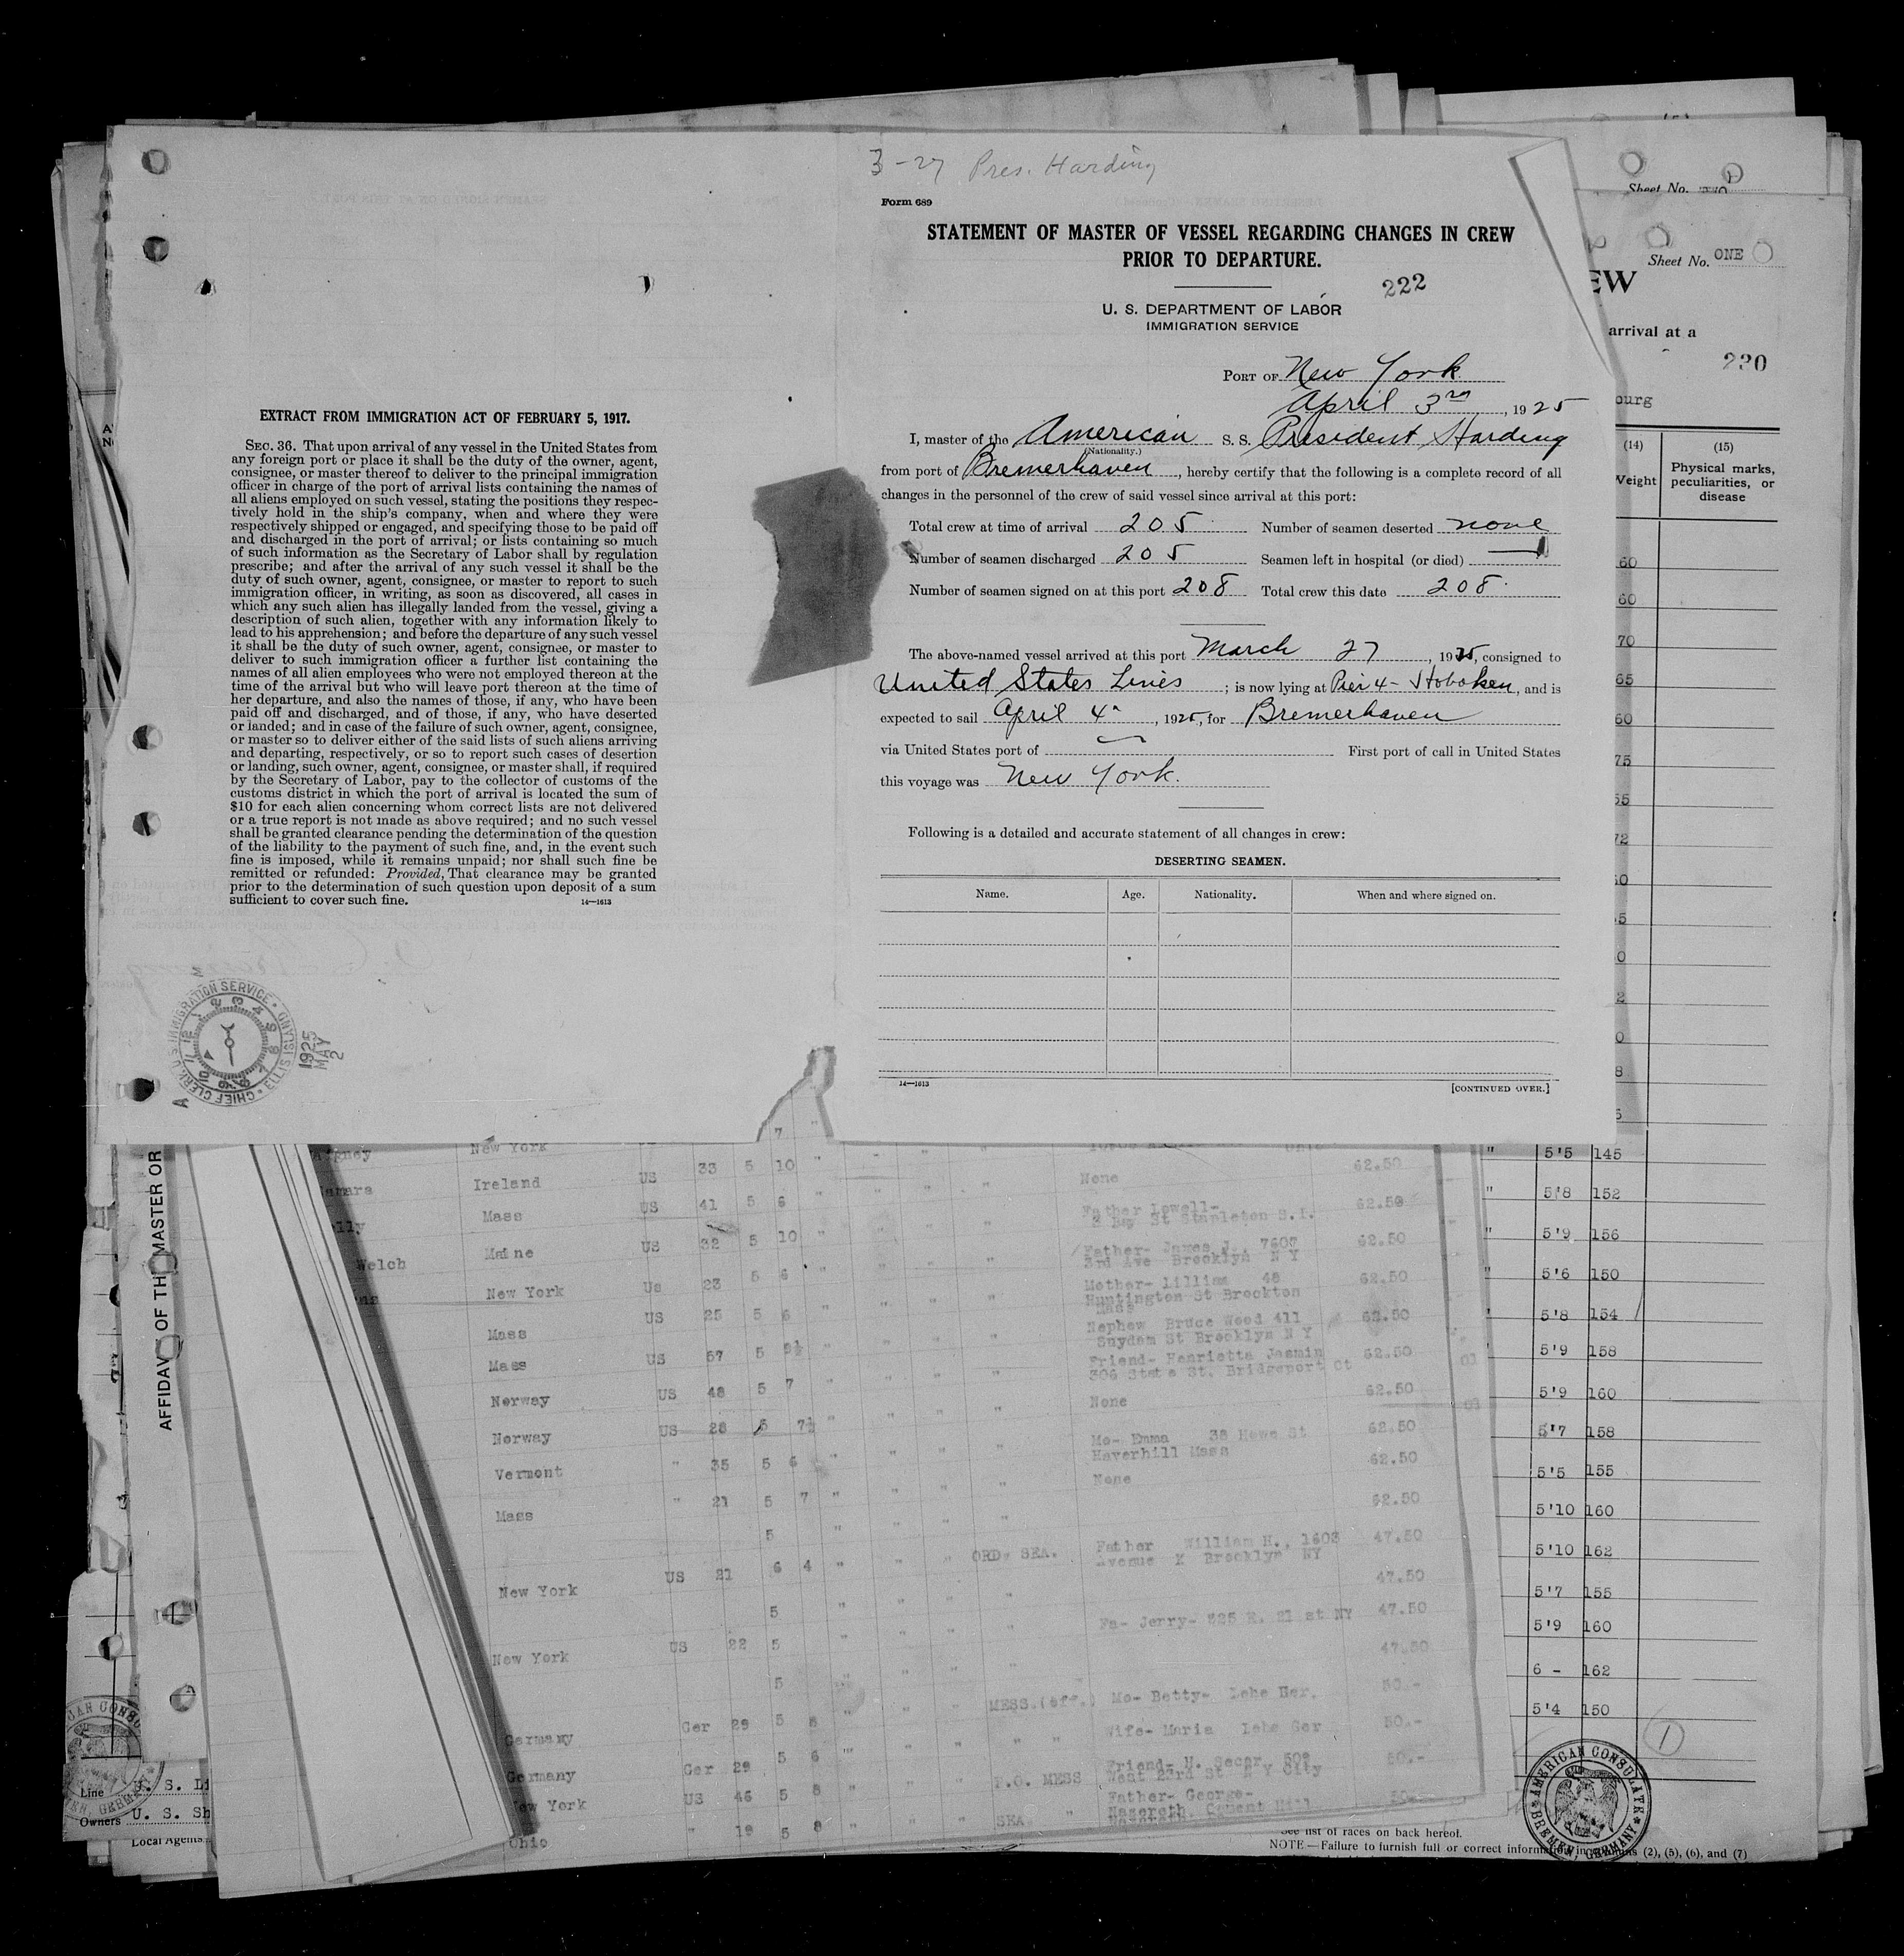 3-27 Pres. Harding
Form 689
STATEMENT OF MASTER OF VESSEL REGARDING CHANGES IN CREW
PRIOR TO DEPARTURE.
222
U. S. DEPARTMENT OF LABOR
IMMIGRATION SERVICE
PORT OF New York
April 3rd, 1925
I, master of the American S. S. President Harding
(Nationality.)
from port of Bremerhaven, hereby certify that the following is a complete record of all
changes in the personnel of the crew of said vessel since arrival at this port:
Total crew at time of arrival 205 Number of seamen deserted none
Number of seamen discharged 205 Seamen left in hospital (or died) —
Number of seamen signed on at this port 208 Total crew this date 208
The above-named vessel arrived at this port March 27, 1925, consigned to
United States Lines; is now lying at Pier 4 - Hoboken, and is
expected to sail April 4", 1925, for Bremerhaven
via United States port of — First port of call in United States
this voyage was New York.
Following is a detailed and accurate statement of all changes in crew:
DESERTING SEAMEN.
Name. Age. Nationality. When and where signed on.
14—1613 [CONTINUED OVER.]
EXTRACT FROM IMMIGRATION ACT OF FEBRUARY 5, 1917.
SEC. 36. That upon arrival of any vessel in the United States from
any foreign port or place it shall be the duty of the owner, agent,
consignee, or master thereof to deliver to the principal immigration
officer in charge of the port of arrival lists containing the names of
all aliens employed on such vessel, stating the positions they respec-
tively hold in the ship's company, when and where they were
respectively shipped or engaged, and specifying those to be paid off
and discharged in the port of arrival; or lists containing so much
of such information as the Secretary of Labor shall by regulation
prescribe; and after the arrival of any such vessel it shall be the
duty of such owner, agent, consignee, or master to report to such
immigration officer, in writing, as soon as discovered, all cases in
which any such alien has illegally landed from the vessel, giving a
description of such alien, together with any information likely to
lead to his apprehension; and before the departure of any such vessel
it shall be the duty of such owner, agent, consignee, or master to
deliver to such immigration officer a further list containing the
names of all alien employees who were not employed thereon at the
time of the arrival but who will leave port thereon at the time of
her departure, and also the names of those, if any, who have been
paid off and discharged, and of those, if any, who have deserted
or landed; and in case of the failure of such owner, agent, consignee,
or master so to deliver either of the said lists of such aliens arriving
and departing, respectively, or so to report such cases of desertion
or landing, such owner, agent, consignee, or master shall, if required
by the Secretary of Labor, pay to the collector of customs of the
customs district in which the port of arrival is located the sum of
$10 for each alien concerning whom correct lists are not delivered
or a true report is not made as above required; and no such vessel
shall be granted clearance pending the determination of the question
of the liability to the payment of such fine, and, in the event such
fine is imposed, while it remains unpaid; nor shall such fine be
remitted or refunded: Provided, That clearance may be granted
prior to the determination of such question upon deposit of a sum
sufficient to cover such fine. 14—1613
CHIEF CLERK, U.S. IMMIGRATION SERVICE • ELLIS ISLAND
1925
MAY
2
Sheet No.
Sheet No. ONE
EW
arrival at a
230
ourg
(14) (15)
Weight Physical marks, peculiarities, or disease
60
60
70
65
60
75
55
72
New York 7
Ireland US 33 5 10 " None 62.50
Mass US 41 5 6 " Father Lowell- 62.50
Bay St Stapleton S.I.
Welch Maine US 32 5 10 " Father- James J. 7607 62.50
3rd Ave Brooklyn N Y
New York Us 23 5 6 " Mother- Lilliam 48 62.50
Huntington St Brockton
Mass
Mass US 25 5 6 " Nephew Bruce Wood 411 62.50
Suydam St Brooklyn N Y
Mass US 57 5 9½ " Friend- Henrietta Jasmin 62.50
306 State St. Bridgeport Ct
Norway US 48 5 7 " None 62.50
Norway US 28 5 7½ " Mo- Emma 38 Howe St 62.50
Haverhill Mass
Vermont " 35 5 6 " None 62.50
Mass " 21 5 7 " 62.50
5 " ORD. SEA. Father William H., 1603 47.50
Avenue K Brooklyn NY
New York US 21 6 4 " 47.50
5 " Fa- Jerry- 225 E. 21 st NY 47.50
New York US 22 5 " 47.50
5 " MESS.(off.) Mo- Betty- Lehe Ger. 50.-
Germany Ger 29 5 8 " Wife- Maria Lehe Ger 50.-
Germany Ger 29 5 6 " P.O. MESS Friend- H. Secor, 502 50.-
West 23rd St N Y City
New York US 46 5 8 " Father- George-
Nazareth,
Ohio " 19 5 8 " SEA
" 5'5 145
" 5'8 152
" 5'9 156
" 5'6 150
" 5'8 154
5'9 158
5'9 160
5'7 158
5'5 155
5'10 160
5'10 162
5'7 155
5'9 160
6 - 162
5'4 150
1
AMERICAN CONSULATE
BREMEN, GERMANY
See list of races on back hereof.
NOTE.—Failure to furnish full or correct information in (2), (5), (6), and (7)
AFFIDAVIT OF THE MASTER OR
Line U. S. Li
Owners U. S. Sh
Local Agents